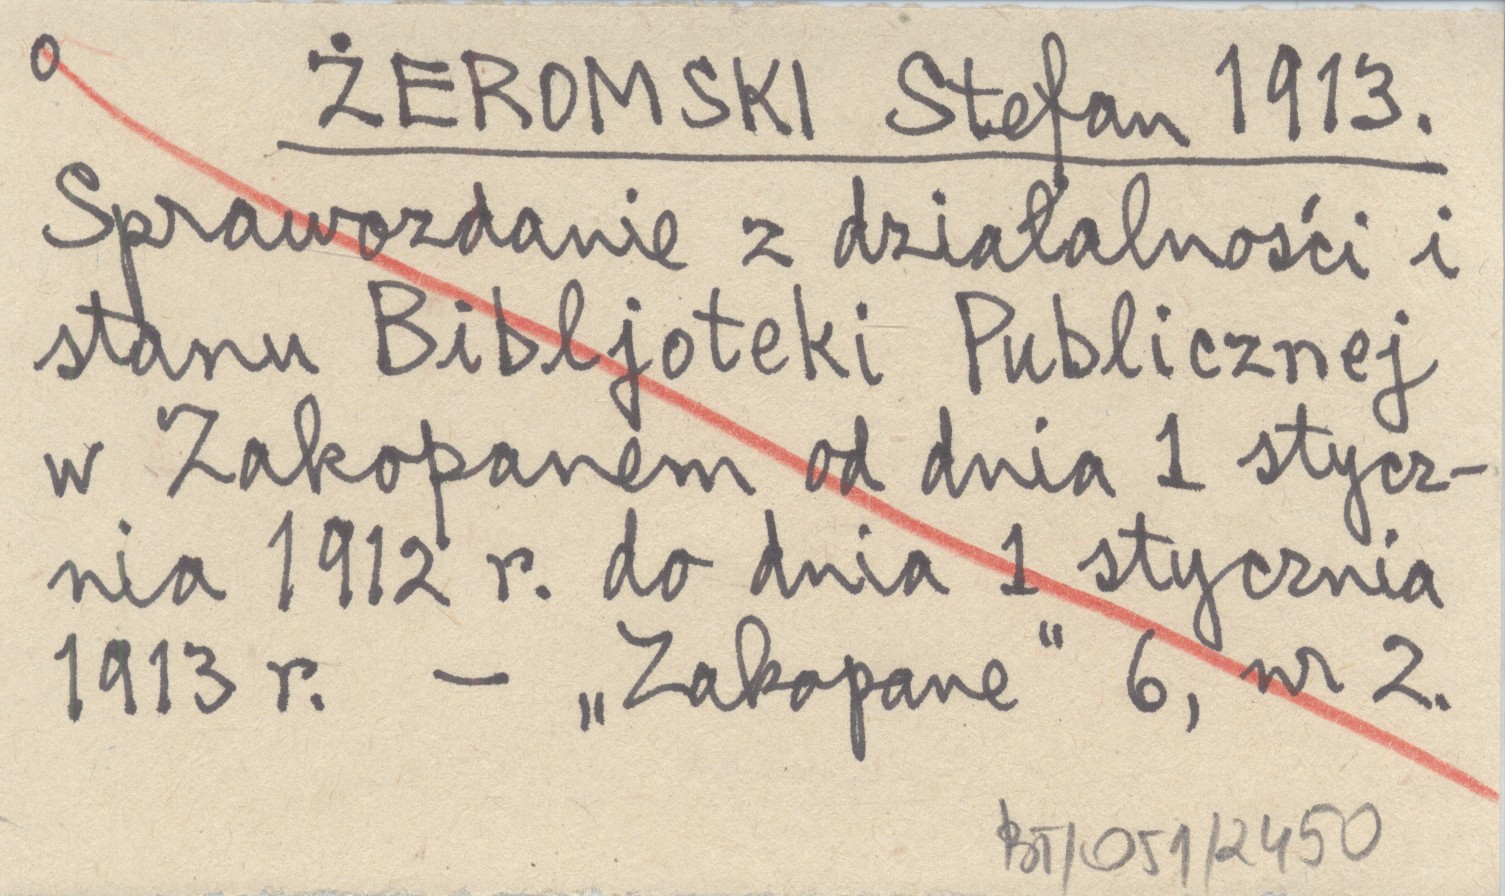 o ŻEROMSKI Stefan 1913.
Sprawozdanie z działalności i
stanu Bibljoteki Publicznej
w Zakopanem od dnia 1 stycz-
nia 1912 r. do dnia 1 stycznia
1913 r. – „Zakopane“ 6, nr 2.
BT/051/2450